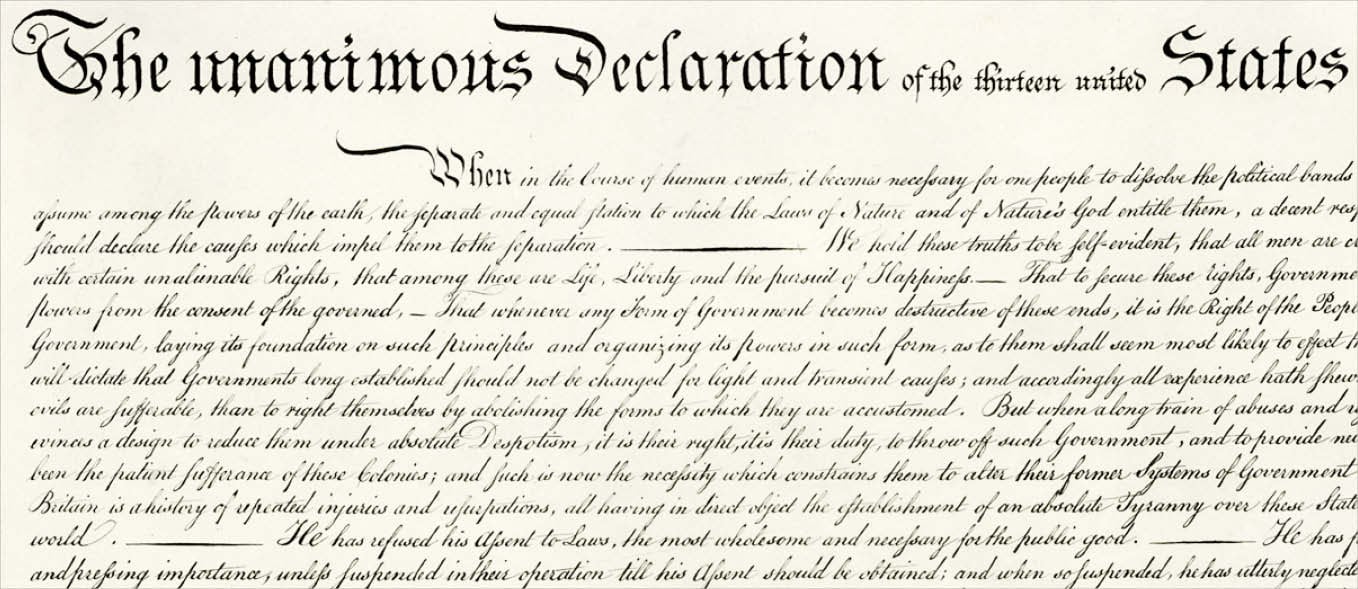 The unanimous Declaration of the thirteen united States
When in the Course of human events, it becomes necessary for one people to dissolve the political bands
assume among the powers of the earth, the separate and equal station to which the Laws of Nature and of Nature's God entitle them, a decent resp
should declare the causes which impel them to the separation. ——— We hold these truths to be self-evident, that all men are cr
with certain unalienable Rights, that among these are Life, Liberty and the pursuit of Happiness.— That to secure these rights, Governme
powers from the consent of the governed, — That whenever any Form of Government becomes destructive of these ends, it is the Right of the Peopl
Government, laying its foundation on such principles and organizing its powers in such form, as to them shall seem most likely to effect th
will dictate that Governments long established should not be changed for light and transient causes; and accordingly all experience hath shew
evils are sufferable, than to right themselves by abolishing the forms to which they are accustomed. But when a long train of abuses and u
evinces a design to reduce them under absolute Despotism, it is their right, it is their duty, to throw off such Government, and to provide new
been the patient sufferance of these Colonies; and such is now the necessity which constrains them to alter their former Systems of Government
Britain is a history of repeated injuries and usurpations, all having in direct object the establishment of an absolute Tyranny over these State
world. ——— He has refused his Assent to Laws, the most wholesome and necessary for the public good. ——— He has f
and pressing importance, unless suspended in their operation till his Assent should be obtained; and when so suspended, he has utterly neglecte